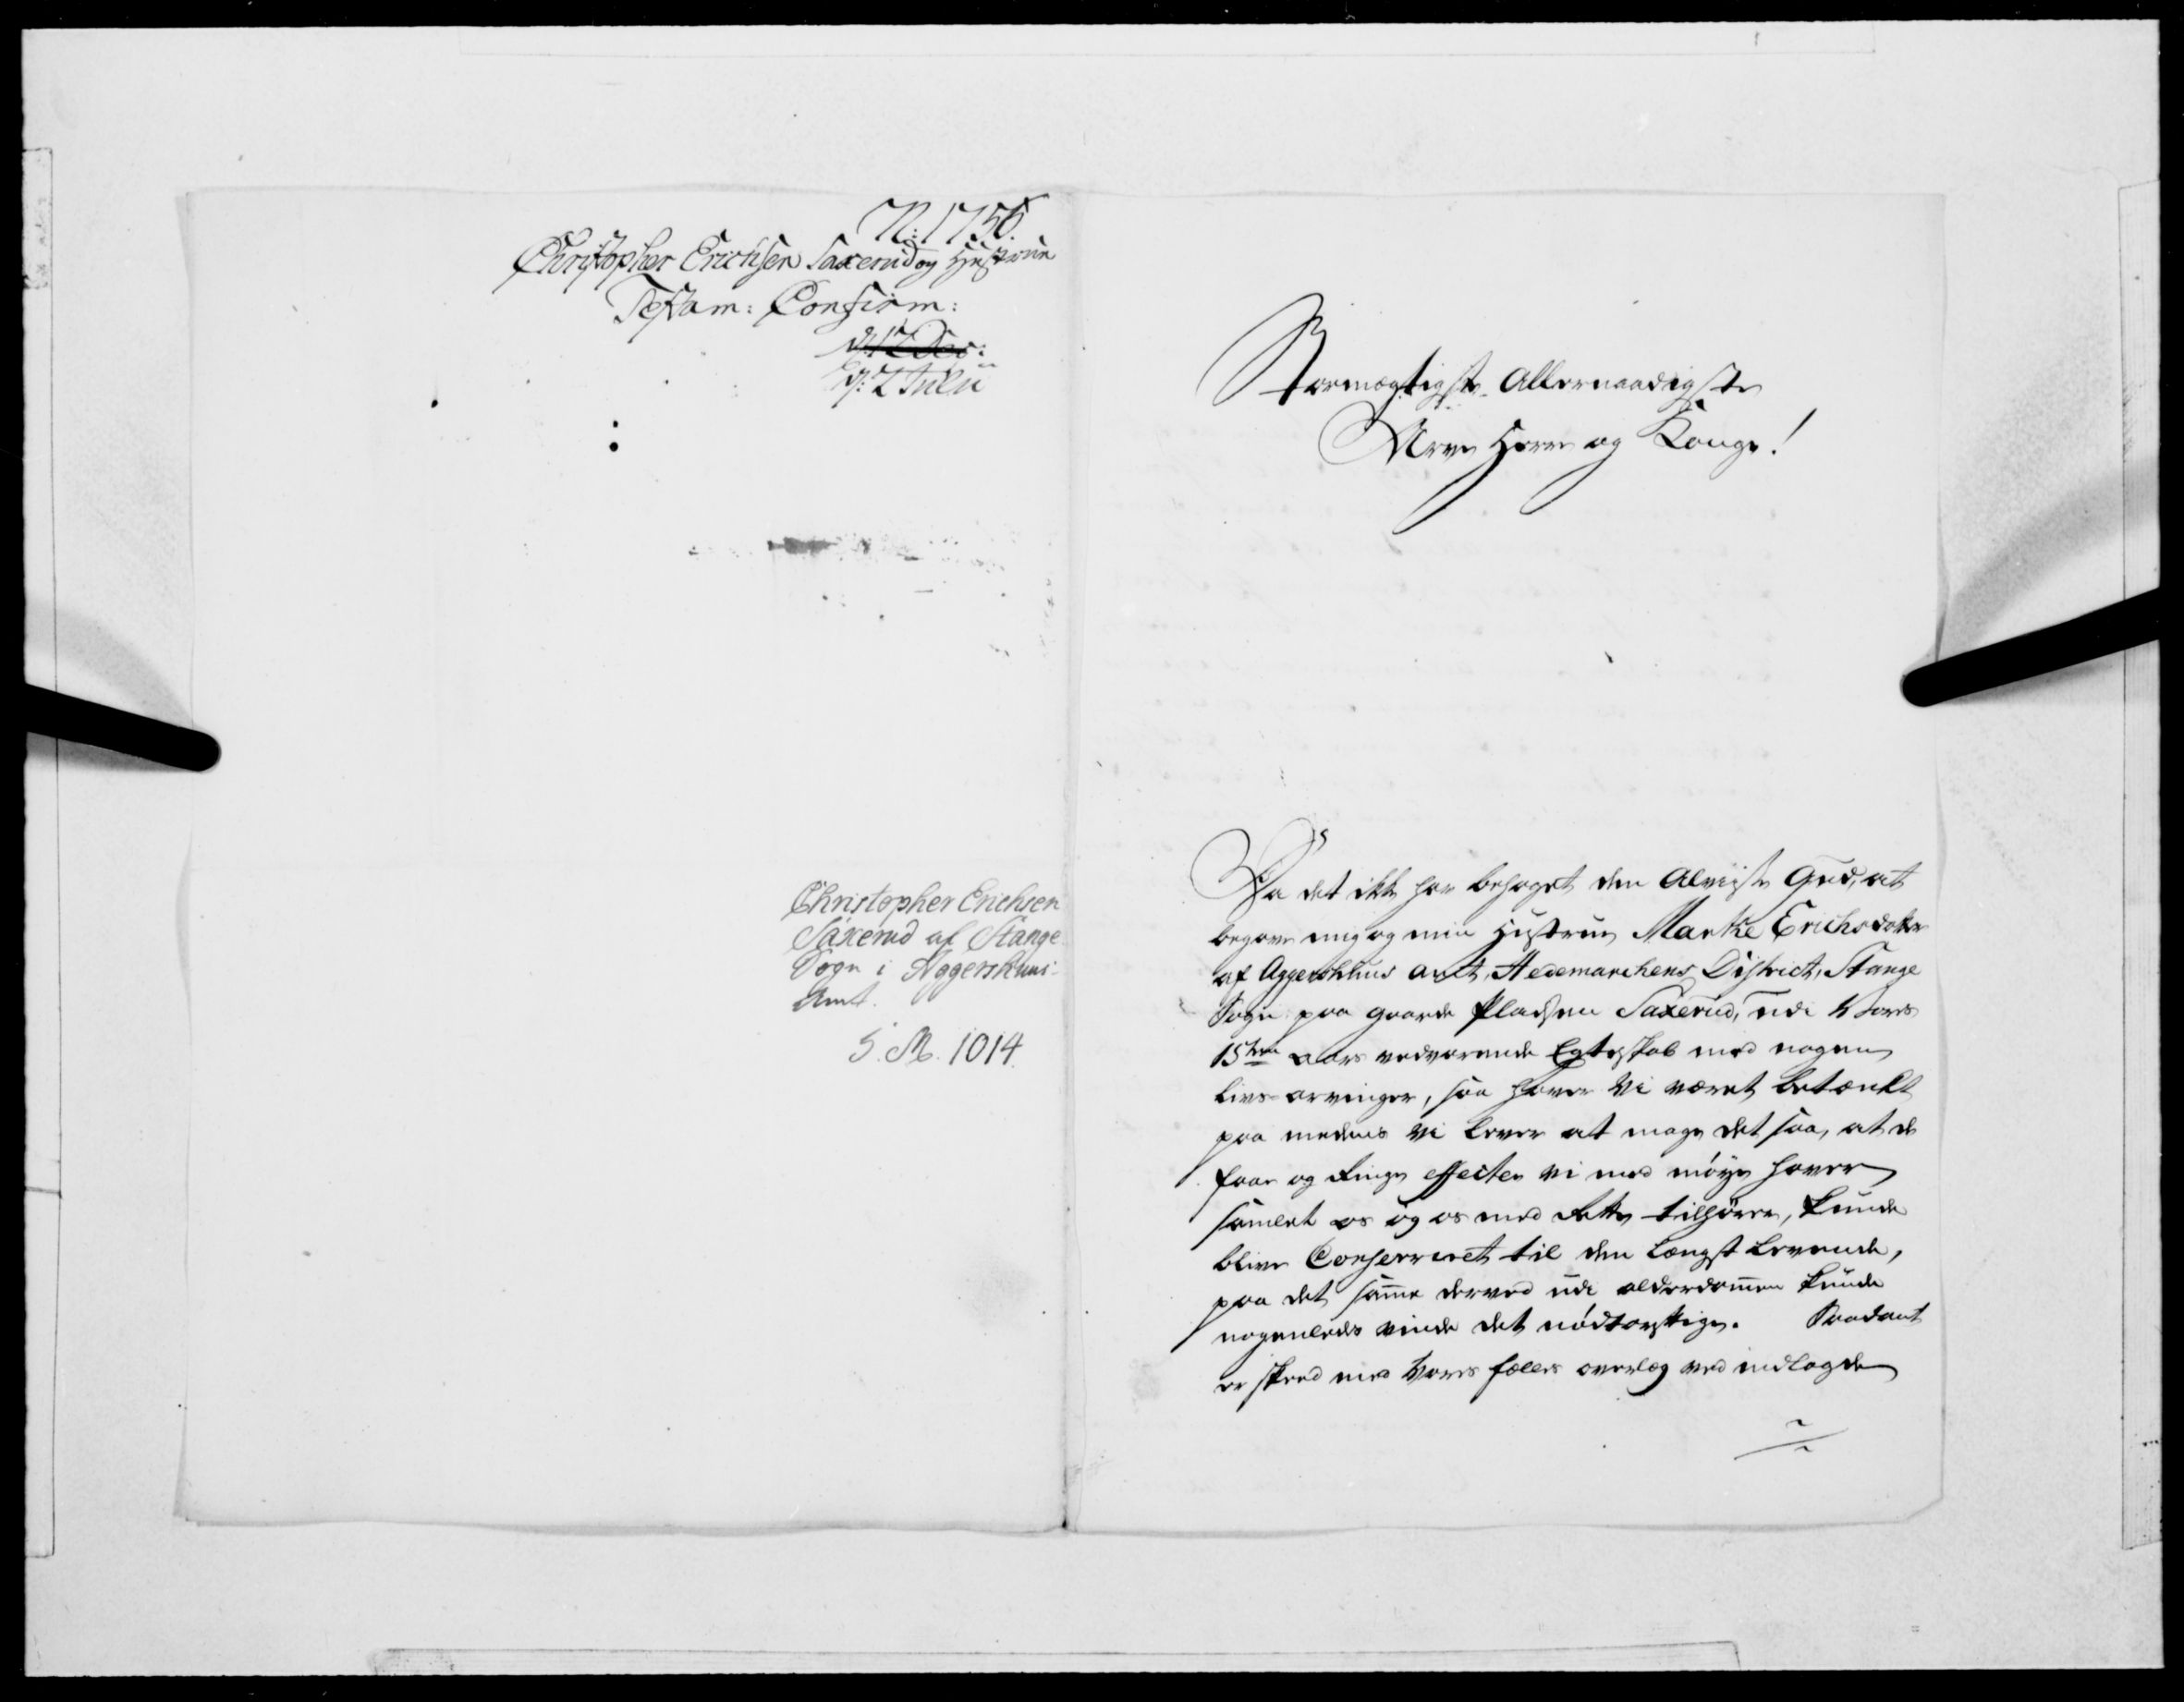 N: 1756.
Christopher Erichsen Saxerud og Hustrue
Testam: Confirm:
d: 12 Dec:
d: 7 Julii
Christopher Erichsen
Saxerud af Stange
Sogn i Aggershuus-
Amt.
S. M. 1014.
Stormægtigste Allernaadigste
Arve Herre og Konge!
Da det ikke har behaget den Alviise Gud, at
begave mig og min Hustrue Marthe Erichsdatter
af Aggershuus amt, Hedemarchens District, Stange
Sogn paa gaarde Pladsen Saxerud, udi Vores
15ten aars vedvarende Egteskab med nogen
livs-arvinger, saa haver Vi været betænkt
paa medens Vi lever at mage det saa, at de
faae og Ringe effecter Vi med møye haver
samlet os og os med Rette tilhører, kunde
blive Conserveret til den længst levende,
paa det samme derved udi alderdommen kunde
nogenledes vinde det nødtørftige. Saadant
er skeed med Vores fælles overlæg ved indlagde